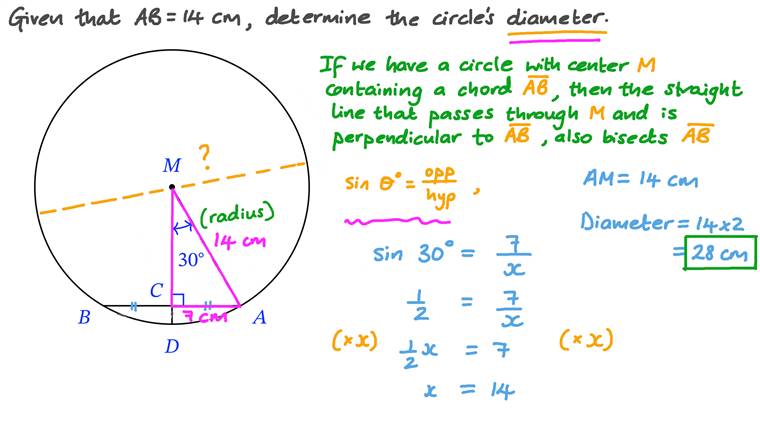 Given that AB = 14 cm, determine the circle's diameter.
If we have a circle with center M
containing a chord A̅B̅, then the straight
line that passes through M and is
perpendicular to A̅B̅, also bisects A̅B̅
?
M
(radius)
14 cm
30°
C
B
7 cm
A
D
sin θ° = opp/hyp,
sin 30° = 7/x
1/2 = 7/x
(× x) 1/2 x = 7 (× x)
x = 14
AM = 14 cm
Diameter = 14 × 2
= 28 cm